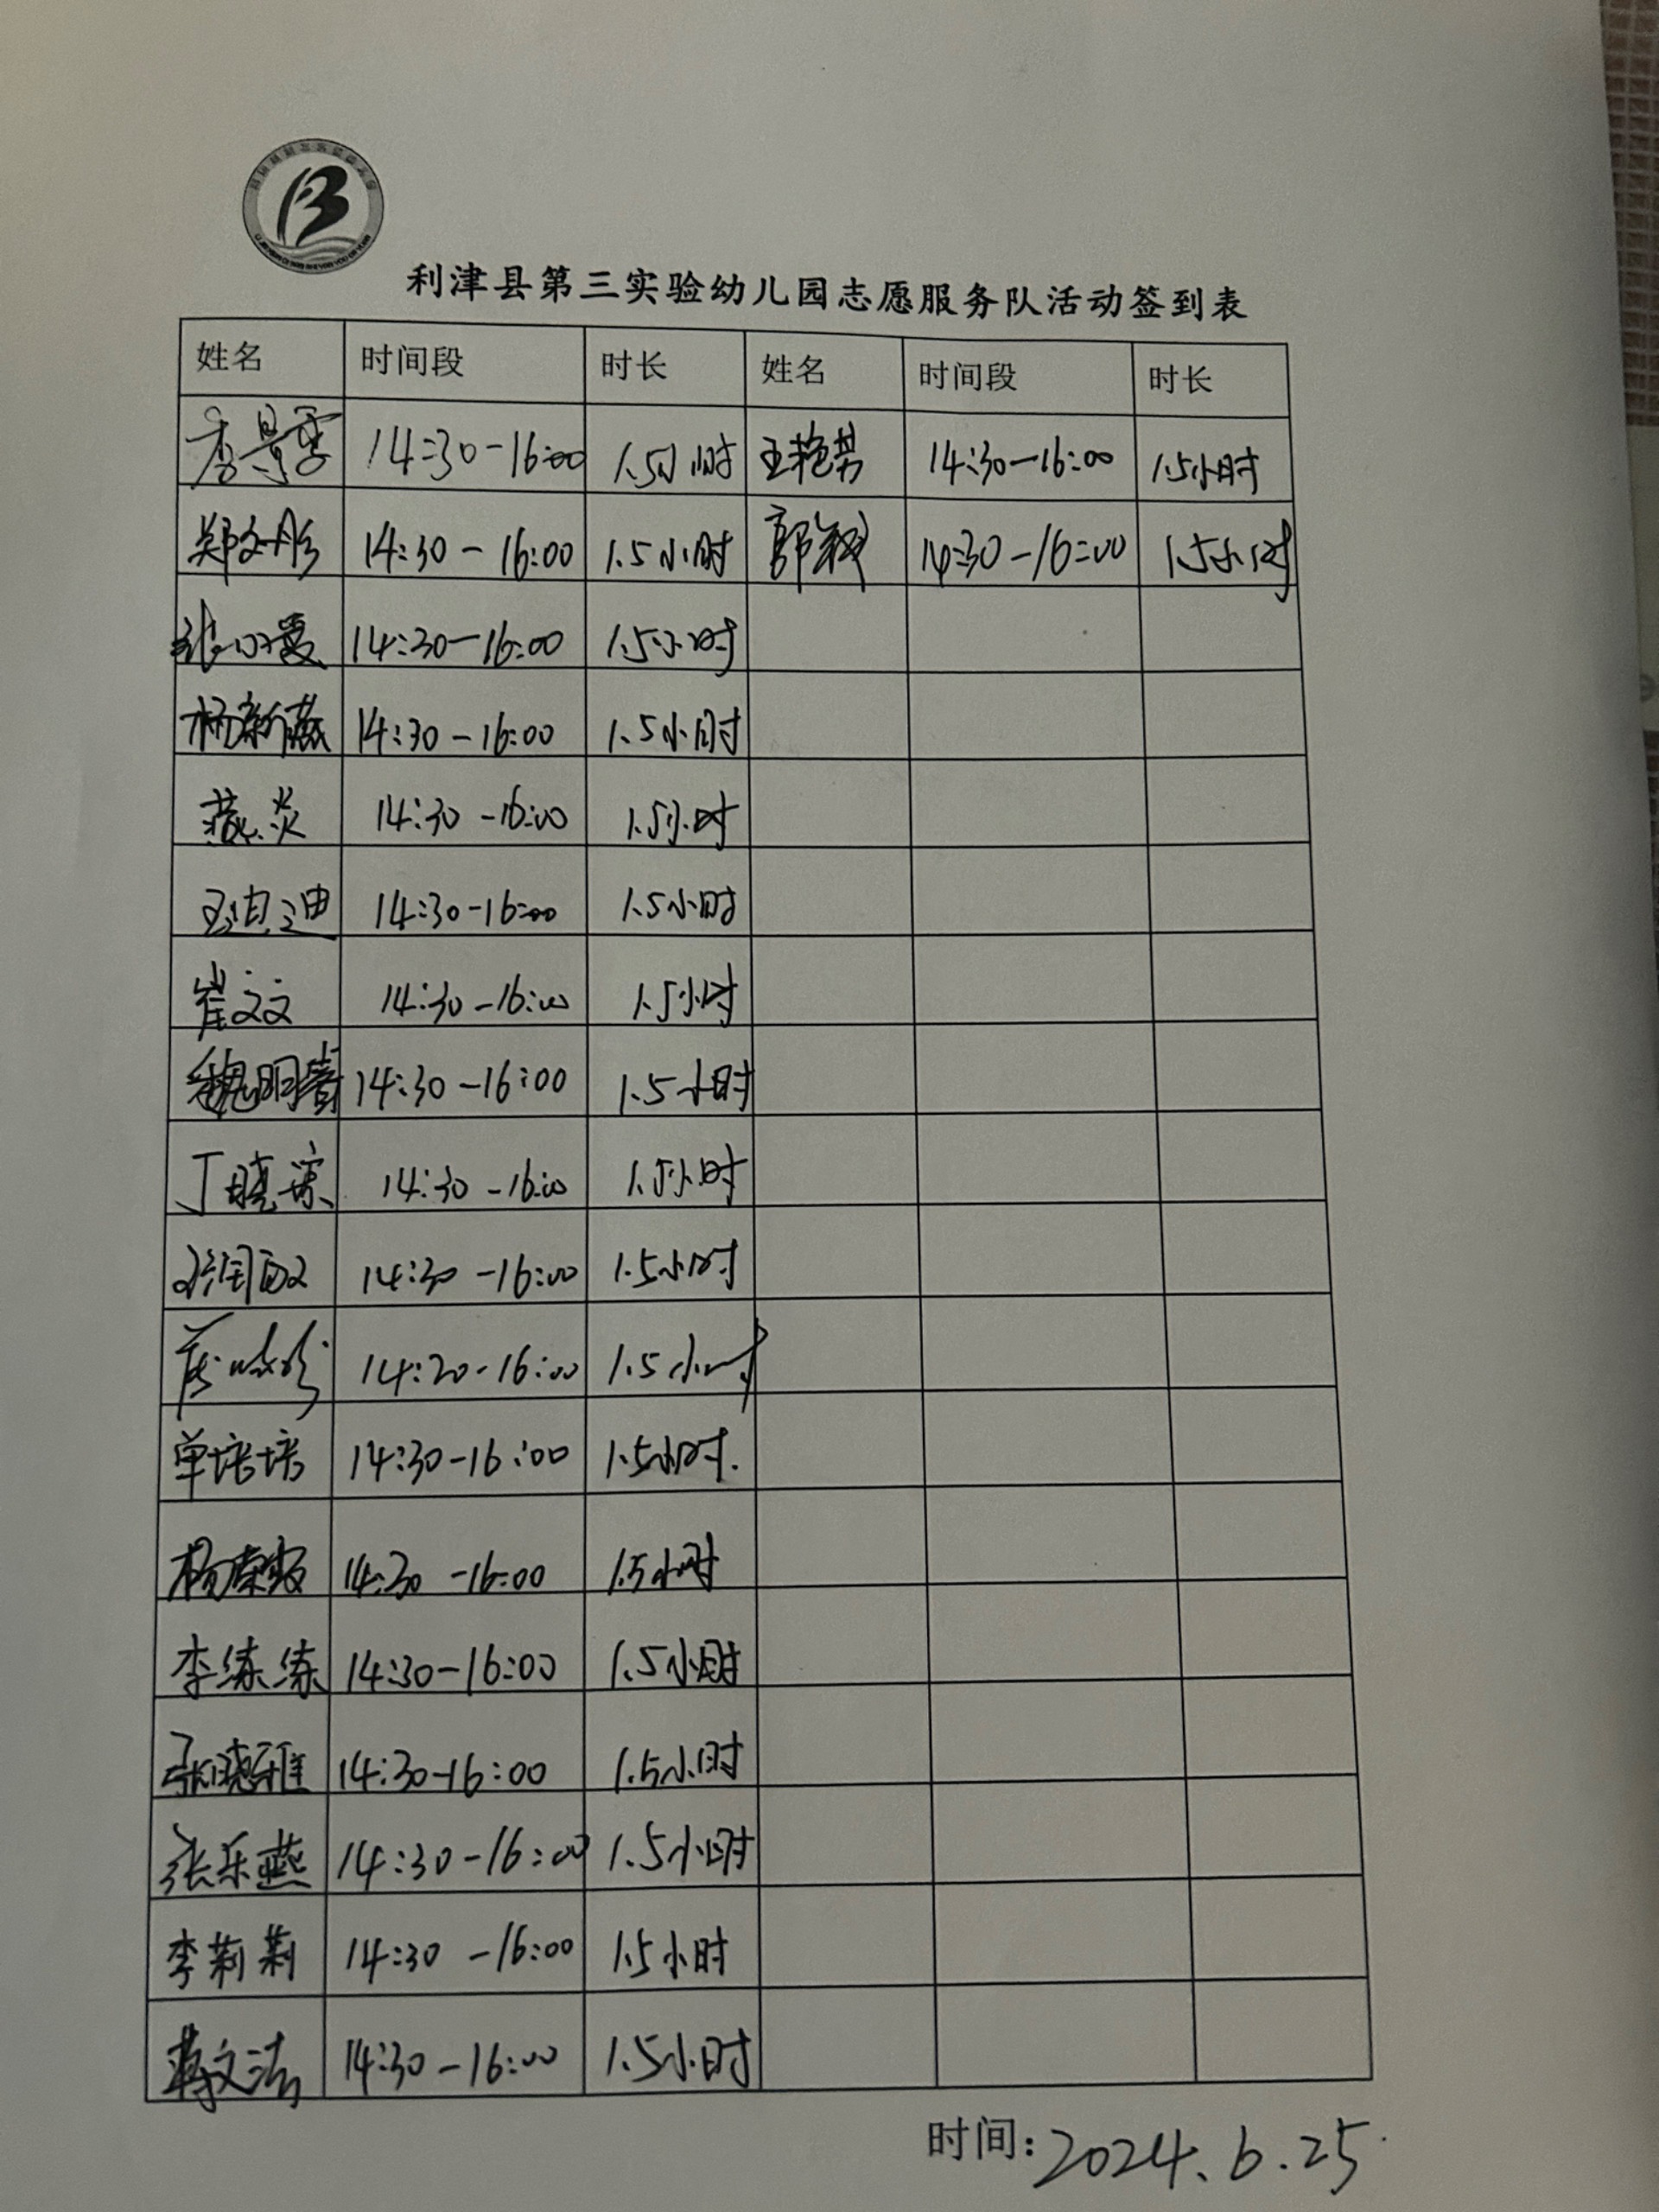 利津县第三实验幼儿园志愿服务队活动签到表
姓名 时间段 时长 姓名 时间段 时长
李景雪 14:30-16:00 1.5小时 王艳芳 14:30-16:00 1.5小时
郑文彤 14:30-16:00 1.5小时 郭 14:30-16:00 1.5小时
张 14:30-16:00 1.5小时
杨新燕 14:30-16:00 1.5小时
炎 14:30-16:00 1.5小时
王迪迪 14:30-16:00 1.5小时
崔文文 14:30-16:00 1.5小时
魏明 14:30-16:00 1.5小时
丁晓琼 14:30-16:00 1.5小时
14:30-16:00 1.5小时
14:20-16:00 1.5小时
单培培 14:30-16:00 1.5小时.
杨 14:30-16:00 1.5小时
李练练 14:30-16:00 1.5小时
张晓雅 14:30-16:00 1.5小时
张乐燕 14:30-16:00 1.5小时
李莉莉 14:30-16:00 1.5小时
蒋文洁 14:30-16:00 1.5小时
时间: 2024.6.25